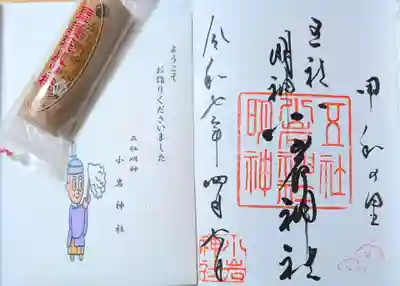 甲和の里
五社
明神
小岩神社
令和七年四月
五社
小岩神社
明神
小岩
神社
ようこそ
お詣りくださいました
五社明神
小岩神社